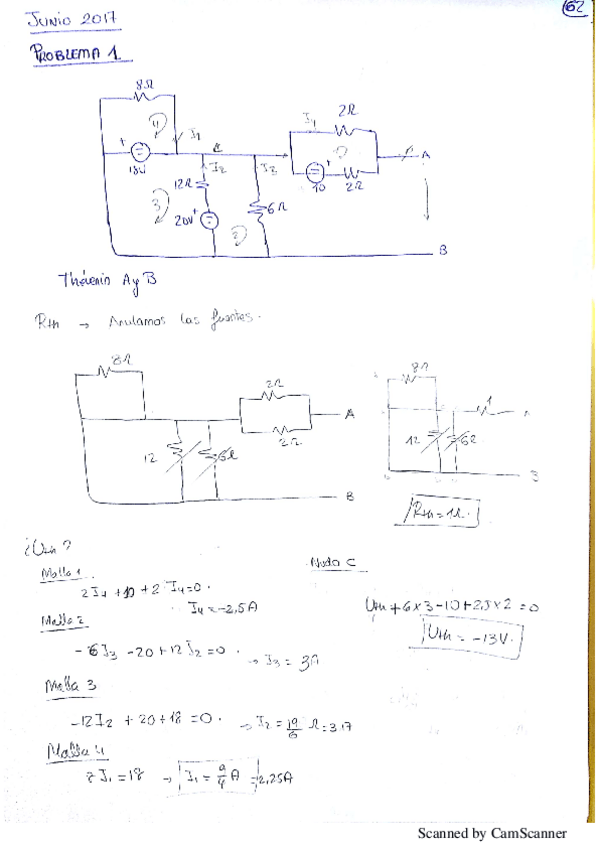 62
JUNIO 2017
PROBLEMA 1
8Ω
4
I1
+
18V
C
I2
I3
12Ω
3
20V +
2
6Ω
I4
2Ω
+
10
2Ω
A
B
Thévenin A y B
RTH → Anulamos las fuentes.
8Ω
12
6Ω
2Ω
2Ω
A
B
8Ω
1
12
6Ω
B
RTH = 1Ω.
¿Uth?
Malla 1
2I4 + 10 + 2 I4 = 0.
I4 = -2,5A
Malla 2
- 6I3 - 20 + 12 I2 = 0.
→ I3 = 3A
Malla 3
-12I2 + 20 + 18 = 0. → I2 = 19/6 Ω = 3.17
Malla 4
8I1 = 18 → I1 = 9/4 A = 2,25A
Nudo C
Uth + 6 x 3 - 10 + 2,5 x 2 = 0
Uth = -13V.
Scanned by CamScanner